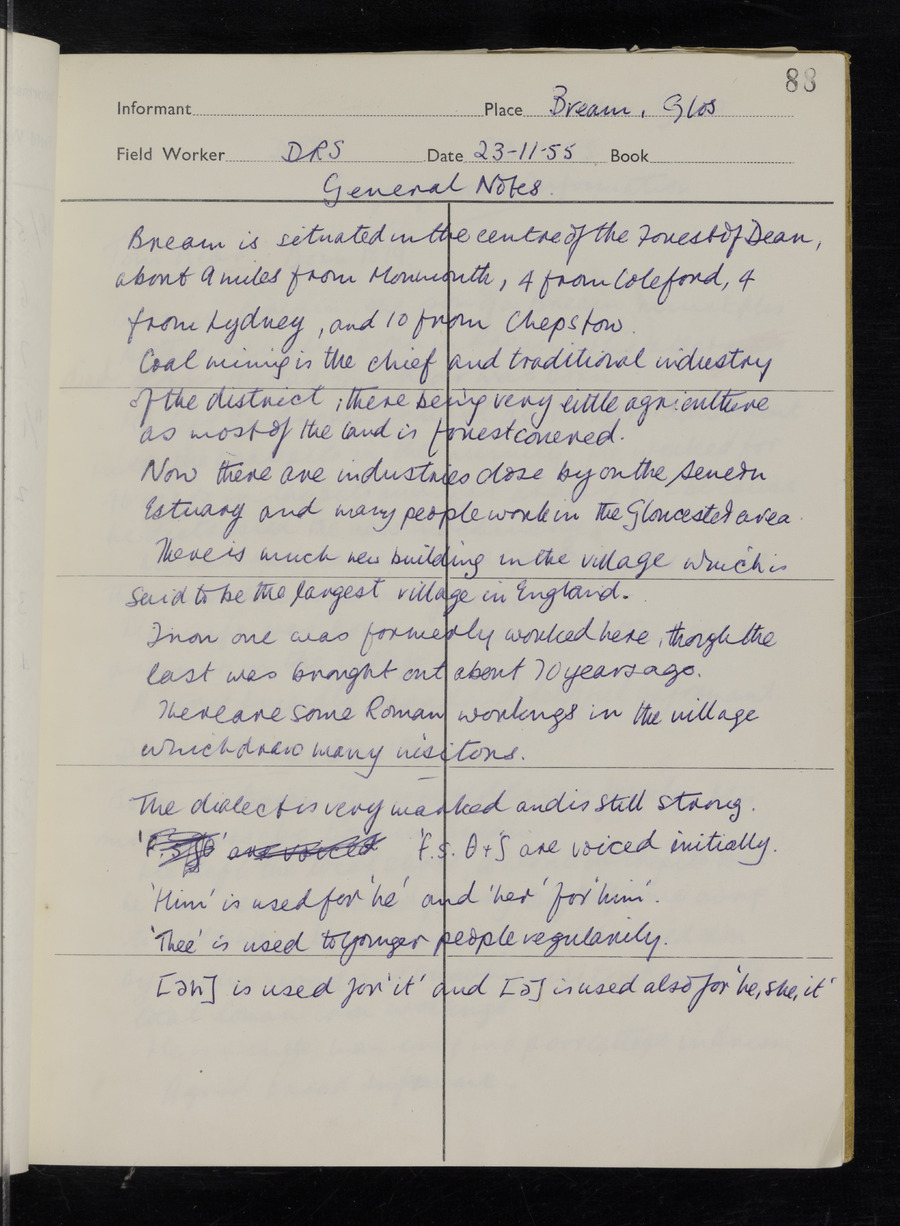 88
Informant Place Bream, Glos
Field Worker DRS Date 23-11-55 Book
General Notes.
Bream is situated in the centre of the Forest of Dean,
about 9 miles from Monmouth, 4 from Coleford, 4
from Lydney, and 10 from Chepstow.
Coal mining is the chief and traditional industry
of the district, there being very little agriculture
as most of the land is forest covered.
Now there are industries close by on the Severn
Estuary and many people work in the Gloucester area.
There is much new building in the village which is
said to be the largest village in England.
Iron ore was formerly worked here, though the
last was brought out about 70 years ago.
There are some Roman workings in the village
which draw many visitors.
The dialect is very marked and is still strong.
are voiced 'F. S. θ + ʃ are voiced initially.
'Him' is used for 'he' and 'her' for 'him'.
'Thee' is used to younger people regularily.
[ən] is used for 'it' and [ə] is used also for 'he, she, it'